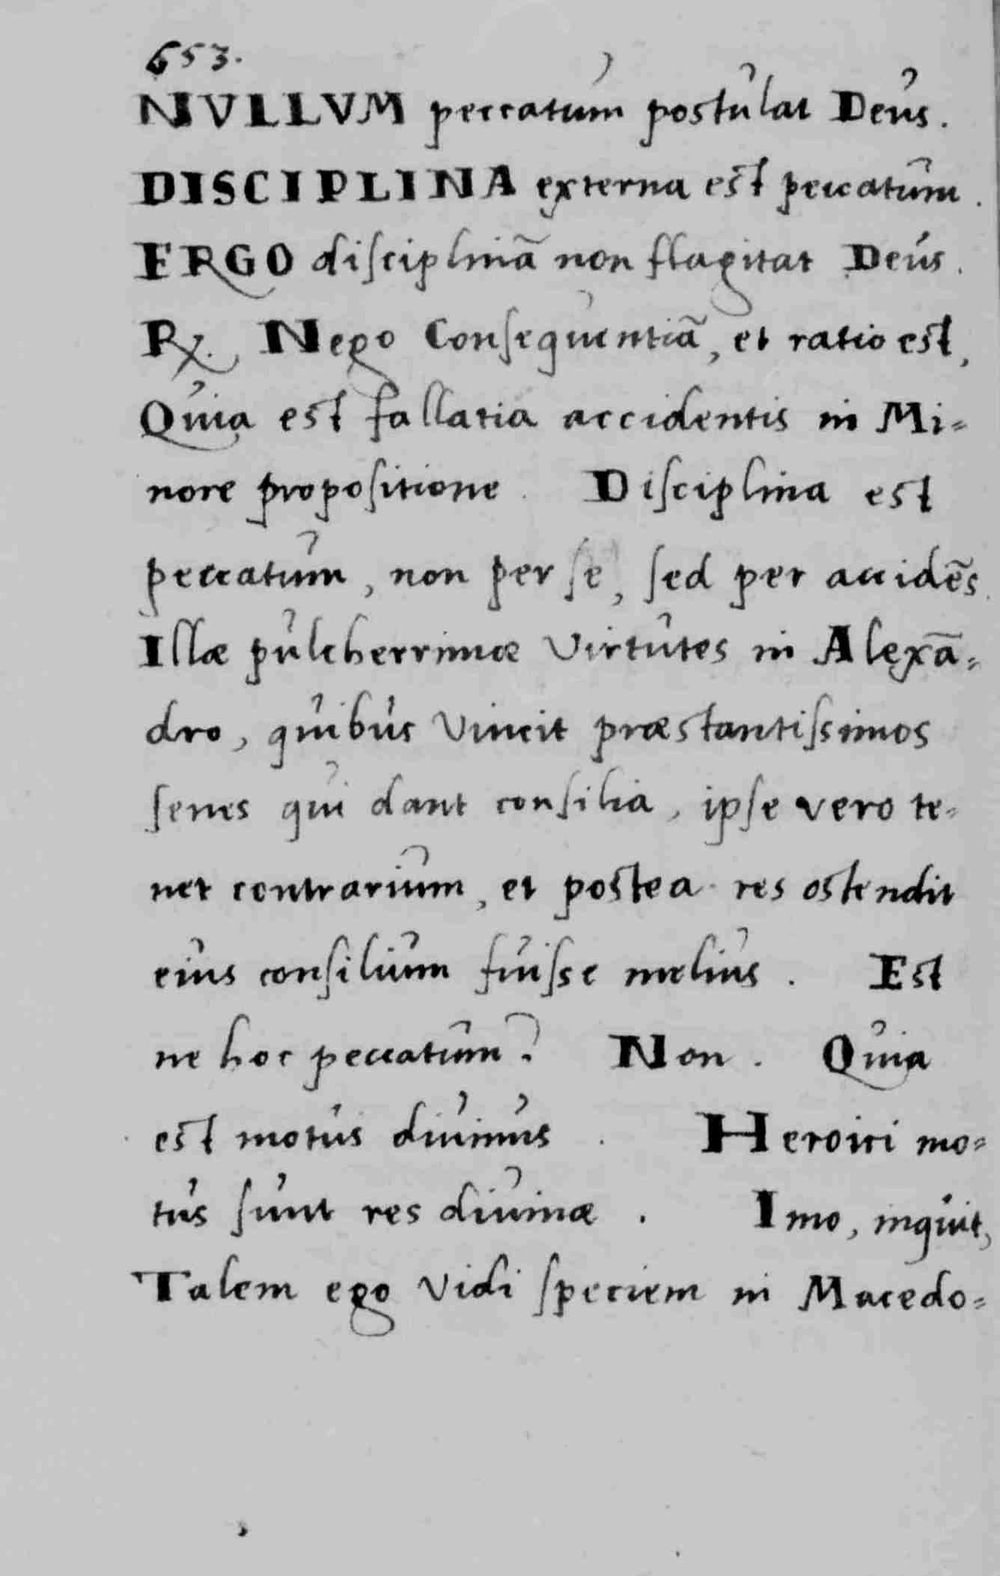 653.
NVLLVM peccatum postulat Deus.
DISCIPLINA externa est peccatum.
ERGO disciplinā non flagitat Deus.
℞. Nego Consequentiā, et ratio est,
Quia est fallatia accidentis in Mi=
nore propositione. Disciplina est
peccatum, non per se, sed per accidēs.
Illæ pulcherrimæ virtutes in Alexā=
dro, quibus vincit præstantissimos
senes qui dant consilia, ipse vero te=
net contrarium, et postea res ostendit
eius consilium fuisse melius. Est
ne hoc peccatum? Non. Quia
est motus diuinus. Heroici mo=
tus sunt res diuinæ. Imo, inquit,
Talem ego vidi speciem in Macedo=